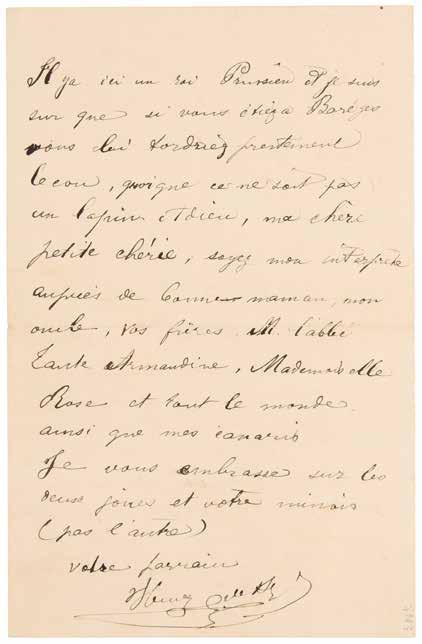 Il ya ici un roi Prussien et je suis
sur que si vous étiez a Barèges
vous lui tordriez prestement
le cou, quoique ce ne soit pas
un lapin et dieu, ma chère
petite chérie, soyez mon interprète
auprès de bonne maman, mon
oncle, vos frères M. l'abbé
Tante Armandine, Mademoiselle
Rose et tout le monde
ainsi que mes canaris
Je vous embrasse sur les
deux joues et votre minois
(pas l'autre)
votre parrain
Henry